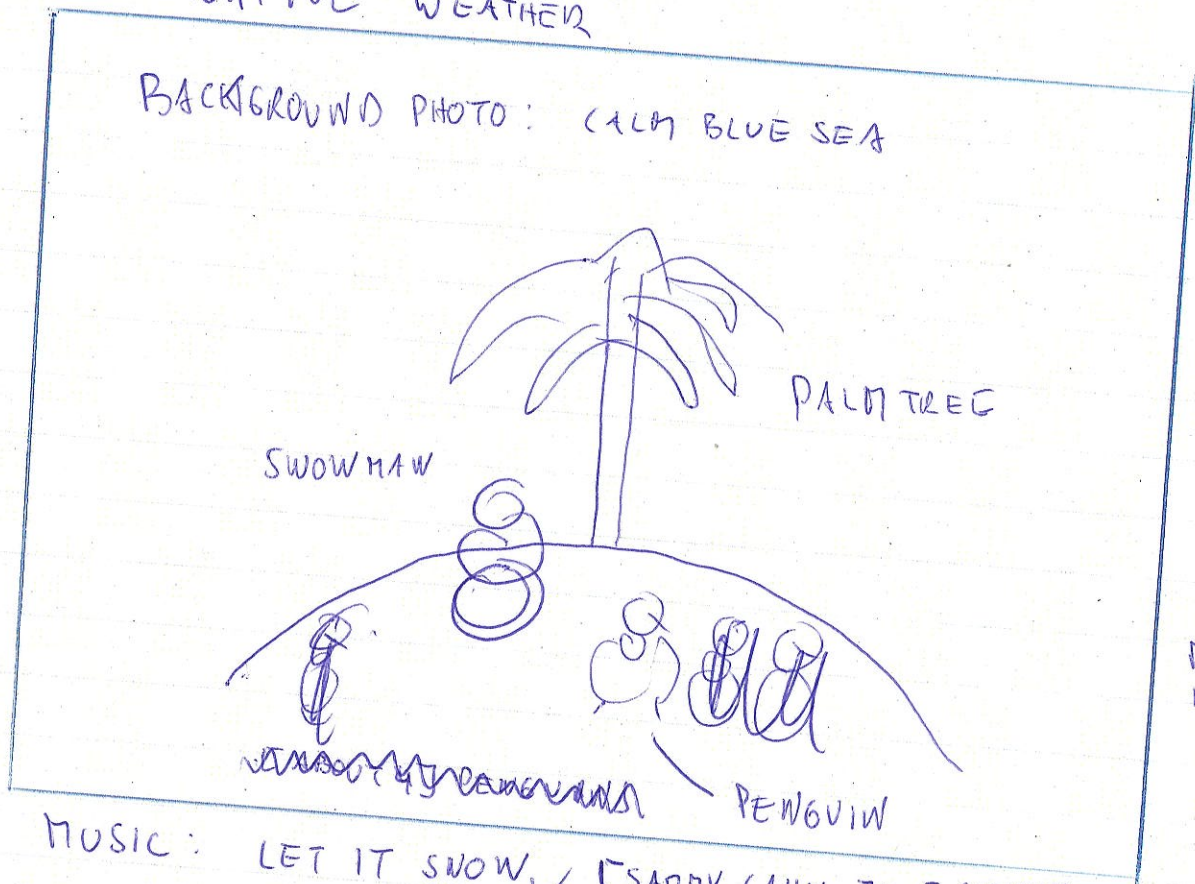 WEATHER
BACKGROUND PHOTO: CALM BLUE SEA
PALM TREE
SNOWMAN
PENGUIN
MUSIC: LET IT SNOW,